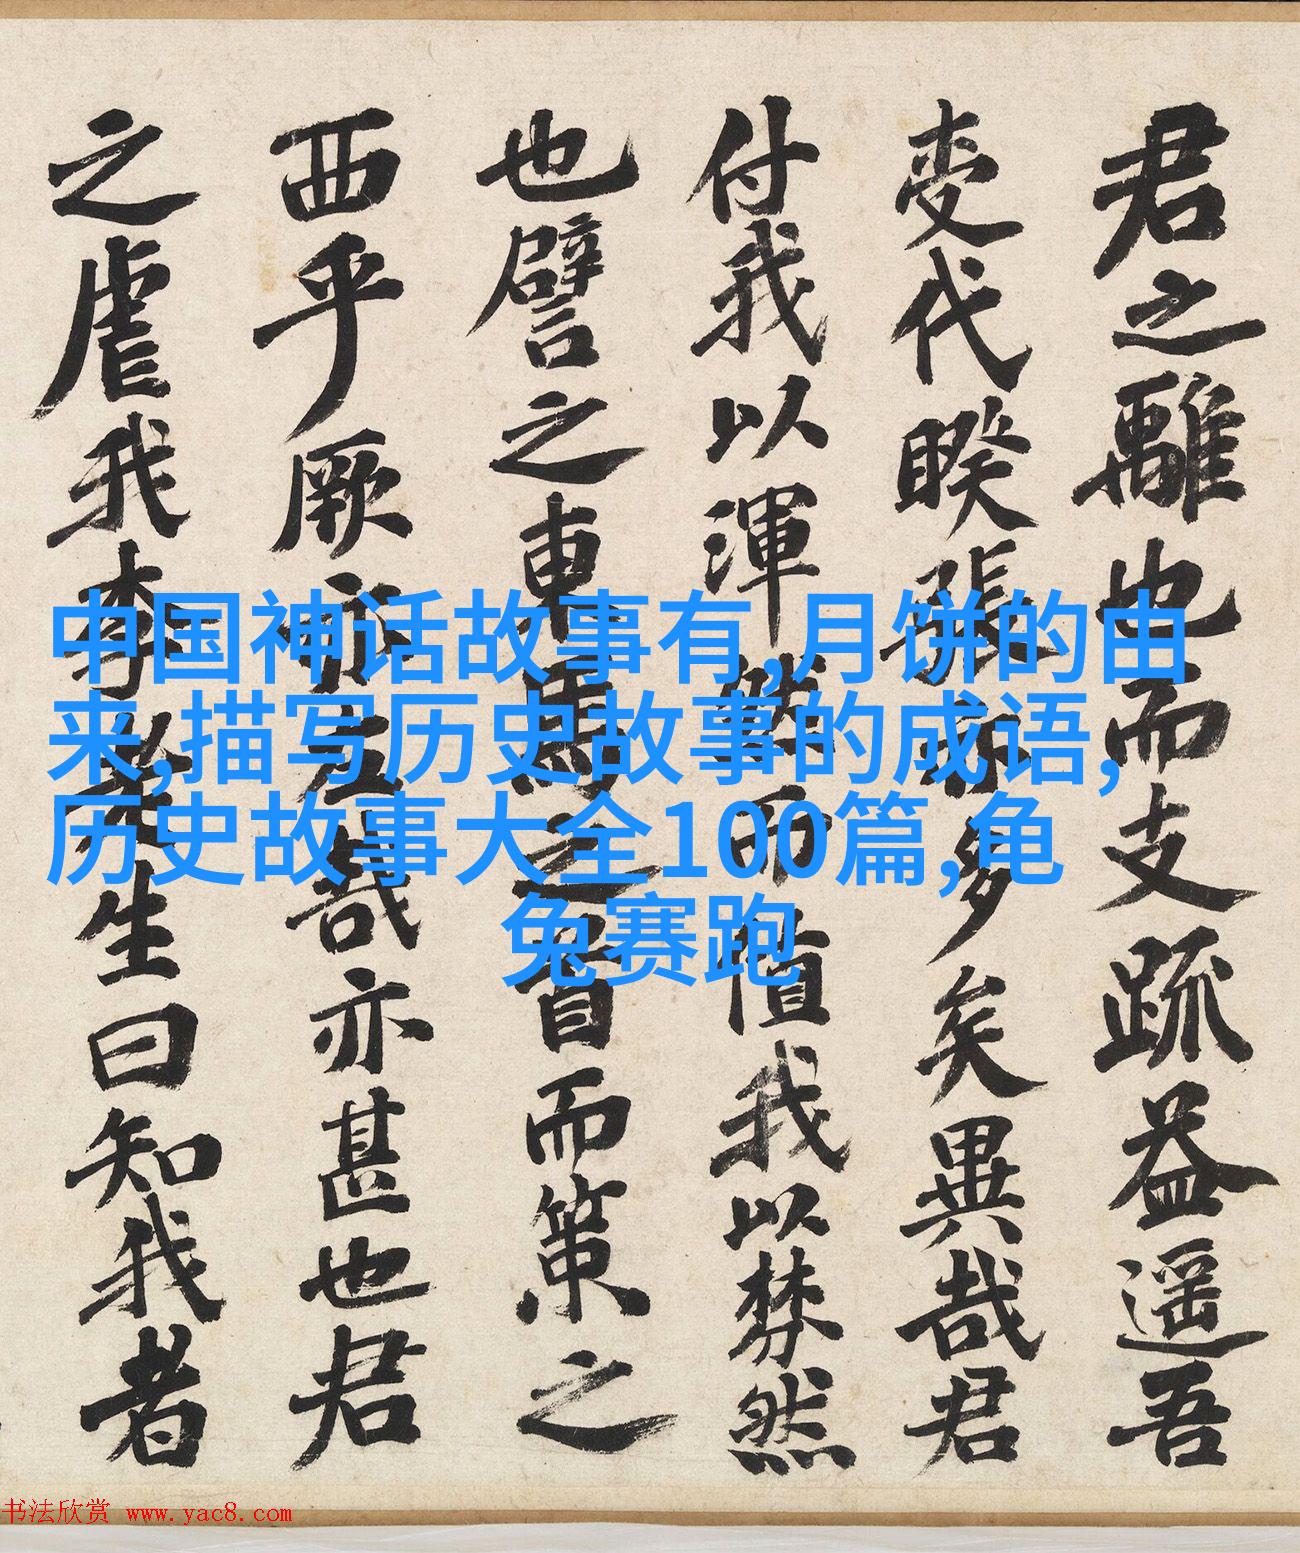 君之離也而支疏益遥吾
代睽張亦多矣異哉君
付我以渾然而值我以棼然
也譬之東馬之首而策之
西乎厥亦左哉亦甚也君
之虐我李生曰知我者
中国神话故事有,月饼的由
来,描写历史故事的成语,
历史故事大全100篇,龟
兔赛跑
书法欣赏 www.yac8.com